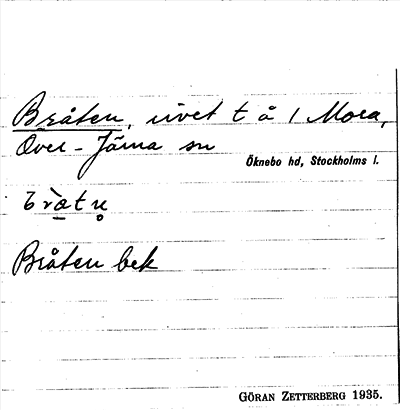 Bråten, rivet t å / Mora,
Över-Järna sn
Öknebo hd, Stockholms l.
Bråten bek
GÖRAN ZETTERBERG 1935.